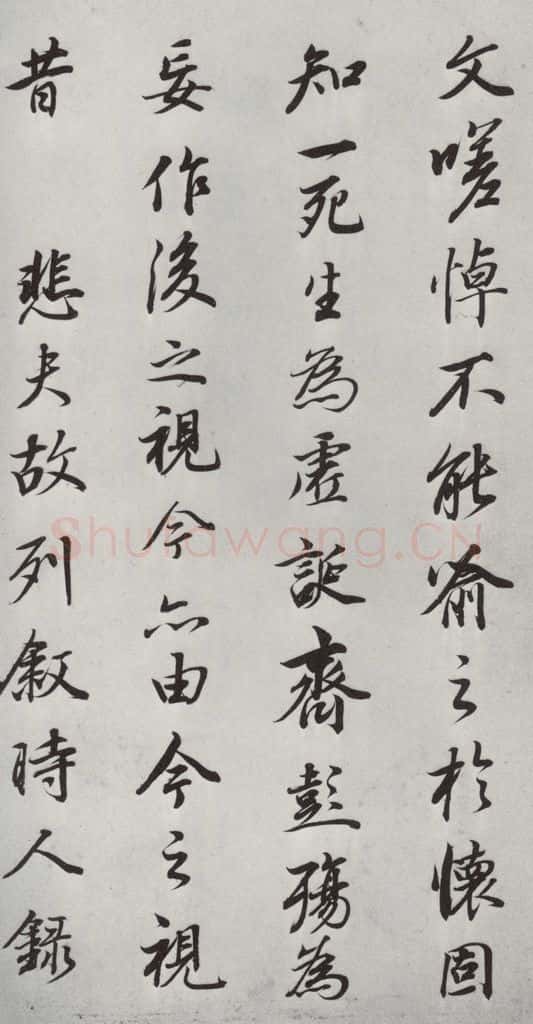 文嗟悼不能喻之於懷固
知一死生為虛誕齊彭殤為
妄作後之視今亦由今之視
昔 悲夫故列敘時人錄
Shufawang.CN